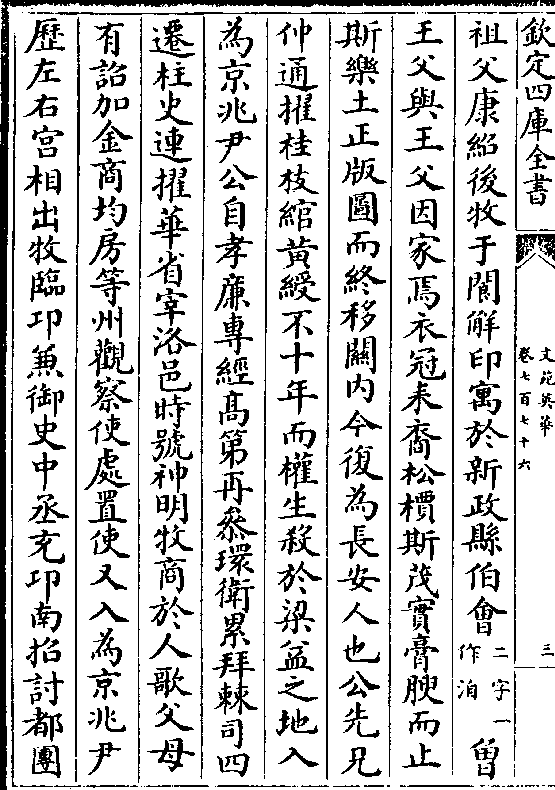 欽定四庫全書
文苑英華
卷七百七十六
三
祖父康紹後牧于閬解印寓於新政縣伯會二字一作洎曽
王父與王父因家焉衣冠耒裔松檟斯茂實膏腴而止
斯樂土正版圖而終移關内今復為長安人也公先兄
仲通擢桂枝綰黄綬不十年而權生殺於梁益之地入
為京兆尹公自孝廉専經髙第再叅環衛累拜棘司四
遷柱史連擢華省宰洛邑時號神明牧商於人歌父母
有詔加金商均房等州觀察使處置使又入為京兆尹
歴左右宫相出牧臨邛兼御史中丞充邛南招討都團